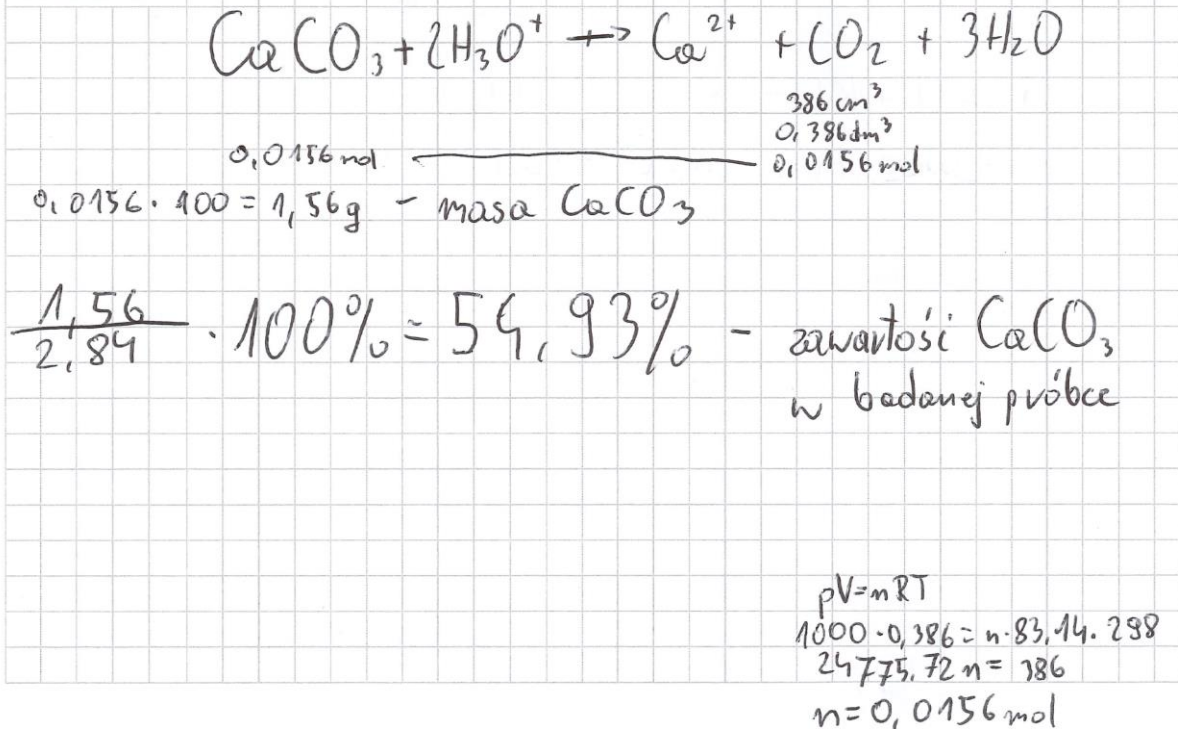 CaCO₃ + 2H₃O⁺ → Ca²⁺ + CO₂ + 3H₂O
386 cm³
0,386 dm³
0,0156 mol 0,0156 mol
0,0156 · 100 = 1,56g - masa CaCO₃
1,56/2,84 · 100% = 54,93% - zawartość CaCO₃
w badanej próbce
pV=nRT
1000 · 0,386 = n · 83,14 · 298
24775,72 n = 386
n = 0,0156 mol